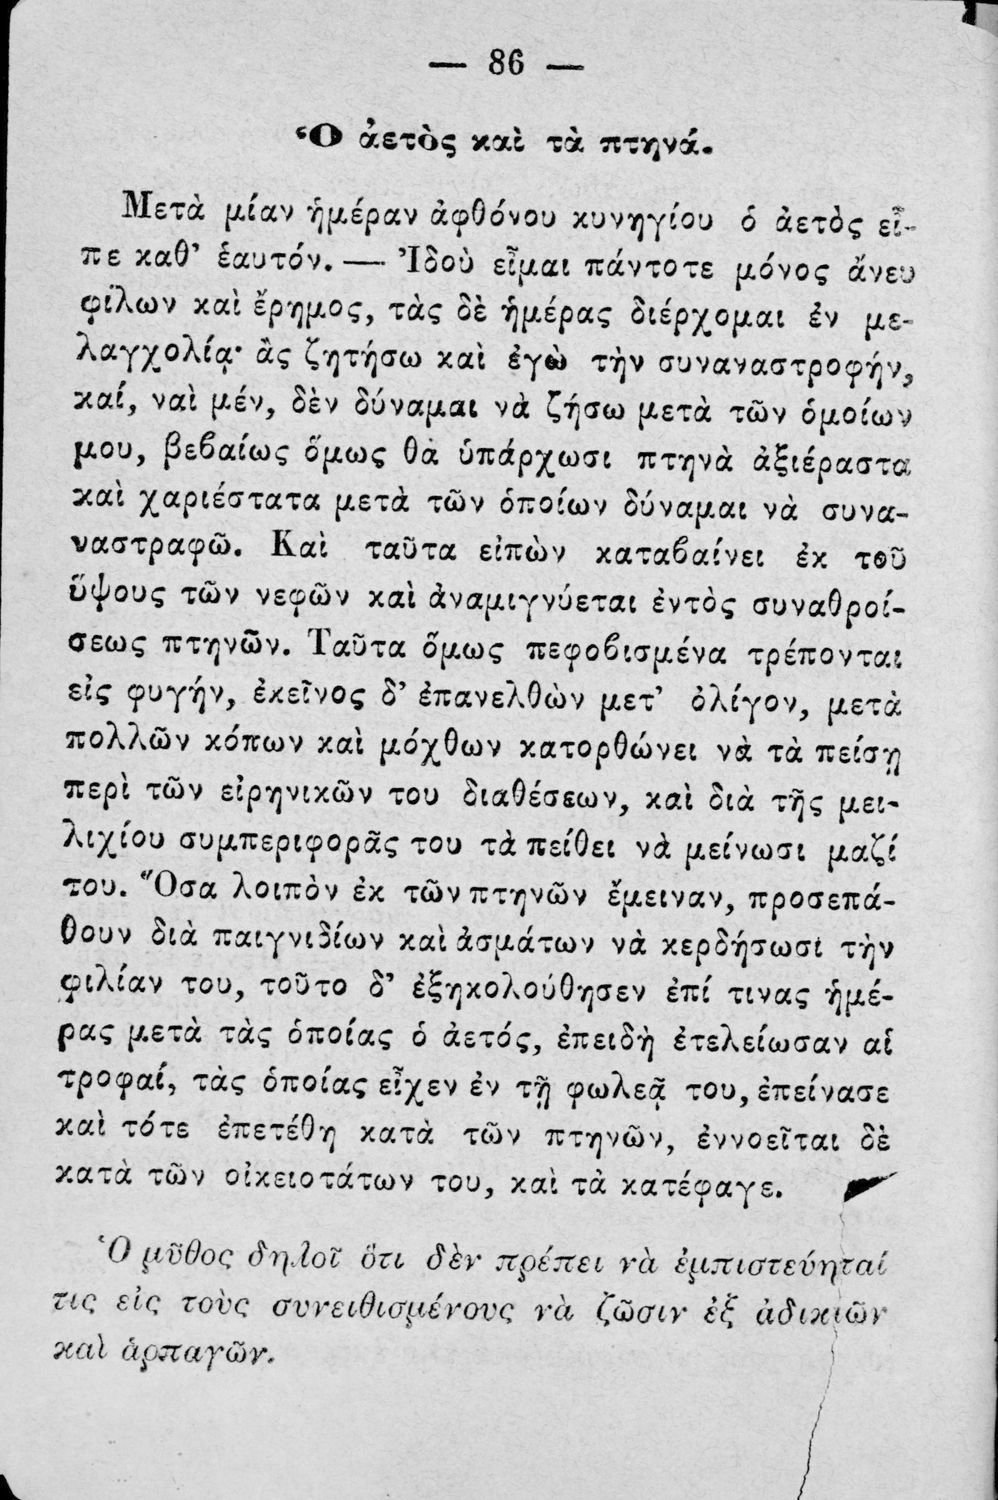 — 86 —
Ὁ ἀετὸς καὶ τὰ πτηνά.
Μετὰ μίαν ἡμέραν ἀφθόνου κυνηγίου ὁ ἀετὸς εἶ-
πε καθ' ἑαυτόν. — Ἰδοὺ εἶμαι πάντοτε μόνος ἄνευ
φίλων καὶ ἔρημος, τὰς δὲ ἡμέρας διέρχομαι ἐν με-
λαγχολίᾳ· ἂς ζητήσω καὶ ἐγὼ τὴν συναναστροφήν,
καί, ναὶ μέν, δὲν δύναμαι νὰ ζήσω μετὰ τῶν ὁμοίων
μου, βεβαίως ὅμως θὰ ὑπάρχωσι πτηνὰ ἀξιέραστα
καὶ χαριέστατα μετὰ τῶν ὁποίων δύναμαι νὰ συνα-
ναστραφῶ. Καὶ ταῦτα εἰπὼν καταβαίνει ἐκ τοῦ
ὕψους τῶν νεφῶν καὶ ἀναμιγνύεται ἐντὸς συναθροί-
σεως πτηνῶν. Ταῦτα ὅμως πεφοβισμένα τρέπονται
εἰς φυγήν, ἐκεῖνος δ' ἐπανελθὼν μετ' ὀλίγον, μετὰ
πολλῶν κόπων καὶ μόχθων κατορθώνει νὰ τὰ πείσῃ
περὶ τῶν εἰρηνικῶν του διαθέσεων, καὶ διὰ τῆς μει-
λιχίου συμπεριφορᾶς του τὰ πείθει νὰ μείνωσι μαζί
του. Ὅσα λοιπὸν ἐκ τῶν πτηνῶν ἔμειναν, προσεπά-
θουν διὰ παιγνιδίων καὶ ἀσμάτων νὰ κερδήσωσι τὴν
φιλίαν του, τοῦτο δ' ἐξηκολούθησεν ἐπί τινας ἡμέ-
ρας μετὰ τὰς ὁποίας ὁ ἀετός, ἐπειδὴ ἐτελείωσαν αἱ
τροφαί, τὰς ὁποίας εἶχεν ἐν τῇ φωλεᾷ του, ἐπείνασε
καὶ τότε ἐπετέθη κατὰ τῶν πτηνῶν, ἐννοεῖται δὲ
κατὰ τῶν οἰκειοτάτων του, καὶ τὰ κατέφαγε.
Ὁ μῦθος δηλοῖ ὅτι δὲν πρέπει νὰ ἐμπιστεύηταί
τις εἰς τοὺς συνειθισμένους νὰ ζῶσιν ἐξ ἀδικιῶν
καὶ ἁρπαγῶν.